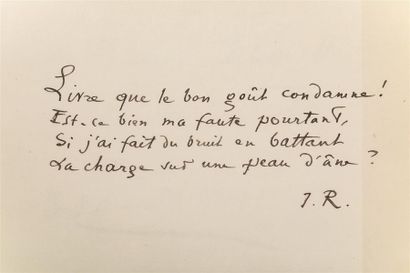 Livre que le bon goût condamne !
Est-ce bien ma faute pourtant,
Si j'ai fait du bruit en battant
La charge sur une peau d'âne ?
J. R.